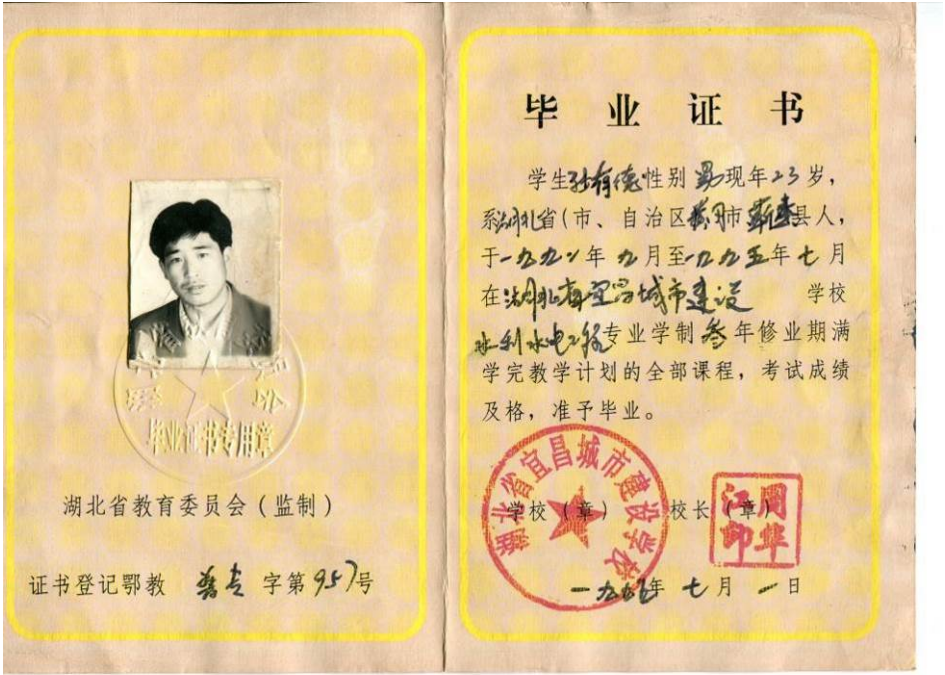 湖北省教育委员会
毕业证书专用章
湖北省教育委员会（监制）
证书登记鄂教 普专 字第957号
毕业证书
学生孙有德性别男现年23岁，
系湖北省（市、自治区黄冈市蕲春县人，
于一九九二年九月至一九九五年七月
在湖北省宜昌城市建设 学校
水利水电工程专业学制叁年修业期满
学完教学计划的全部课程，考试成绩
及格，准予毕业。
湖北省宜昌城市建设学校
学校（章） 校长（章）
周华
江印
一九九五年七月一日